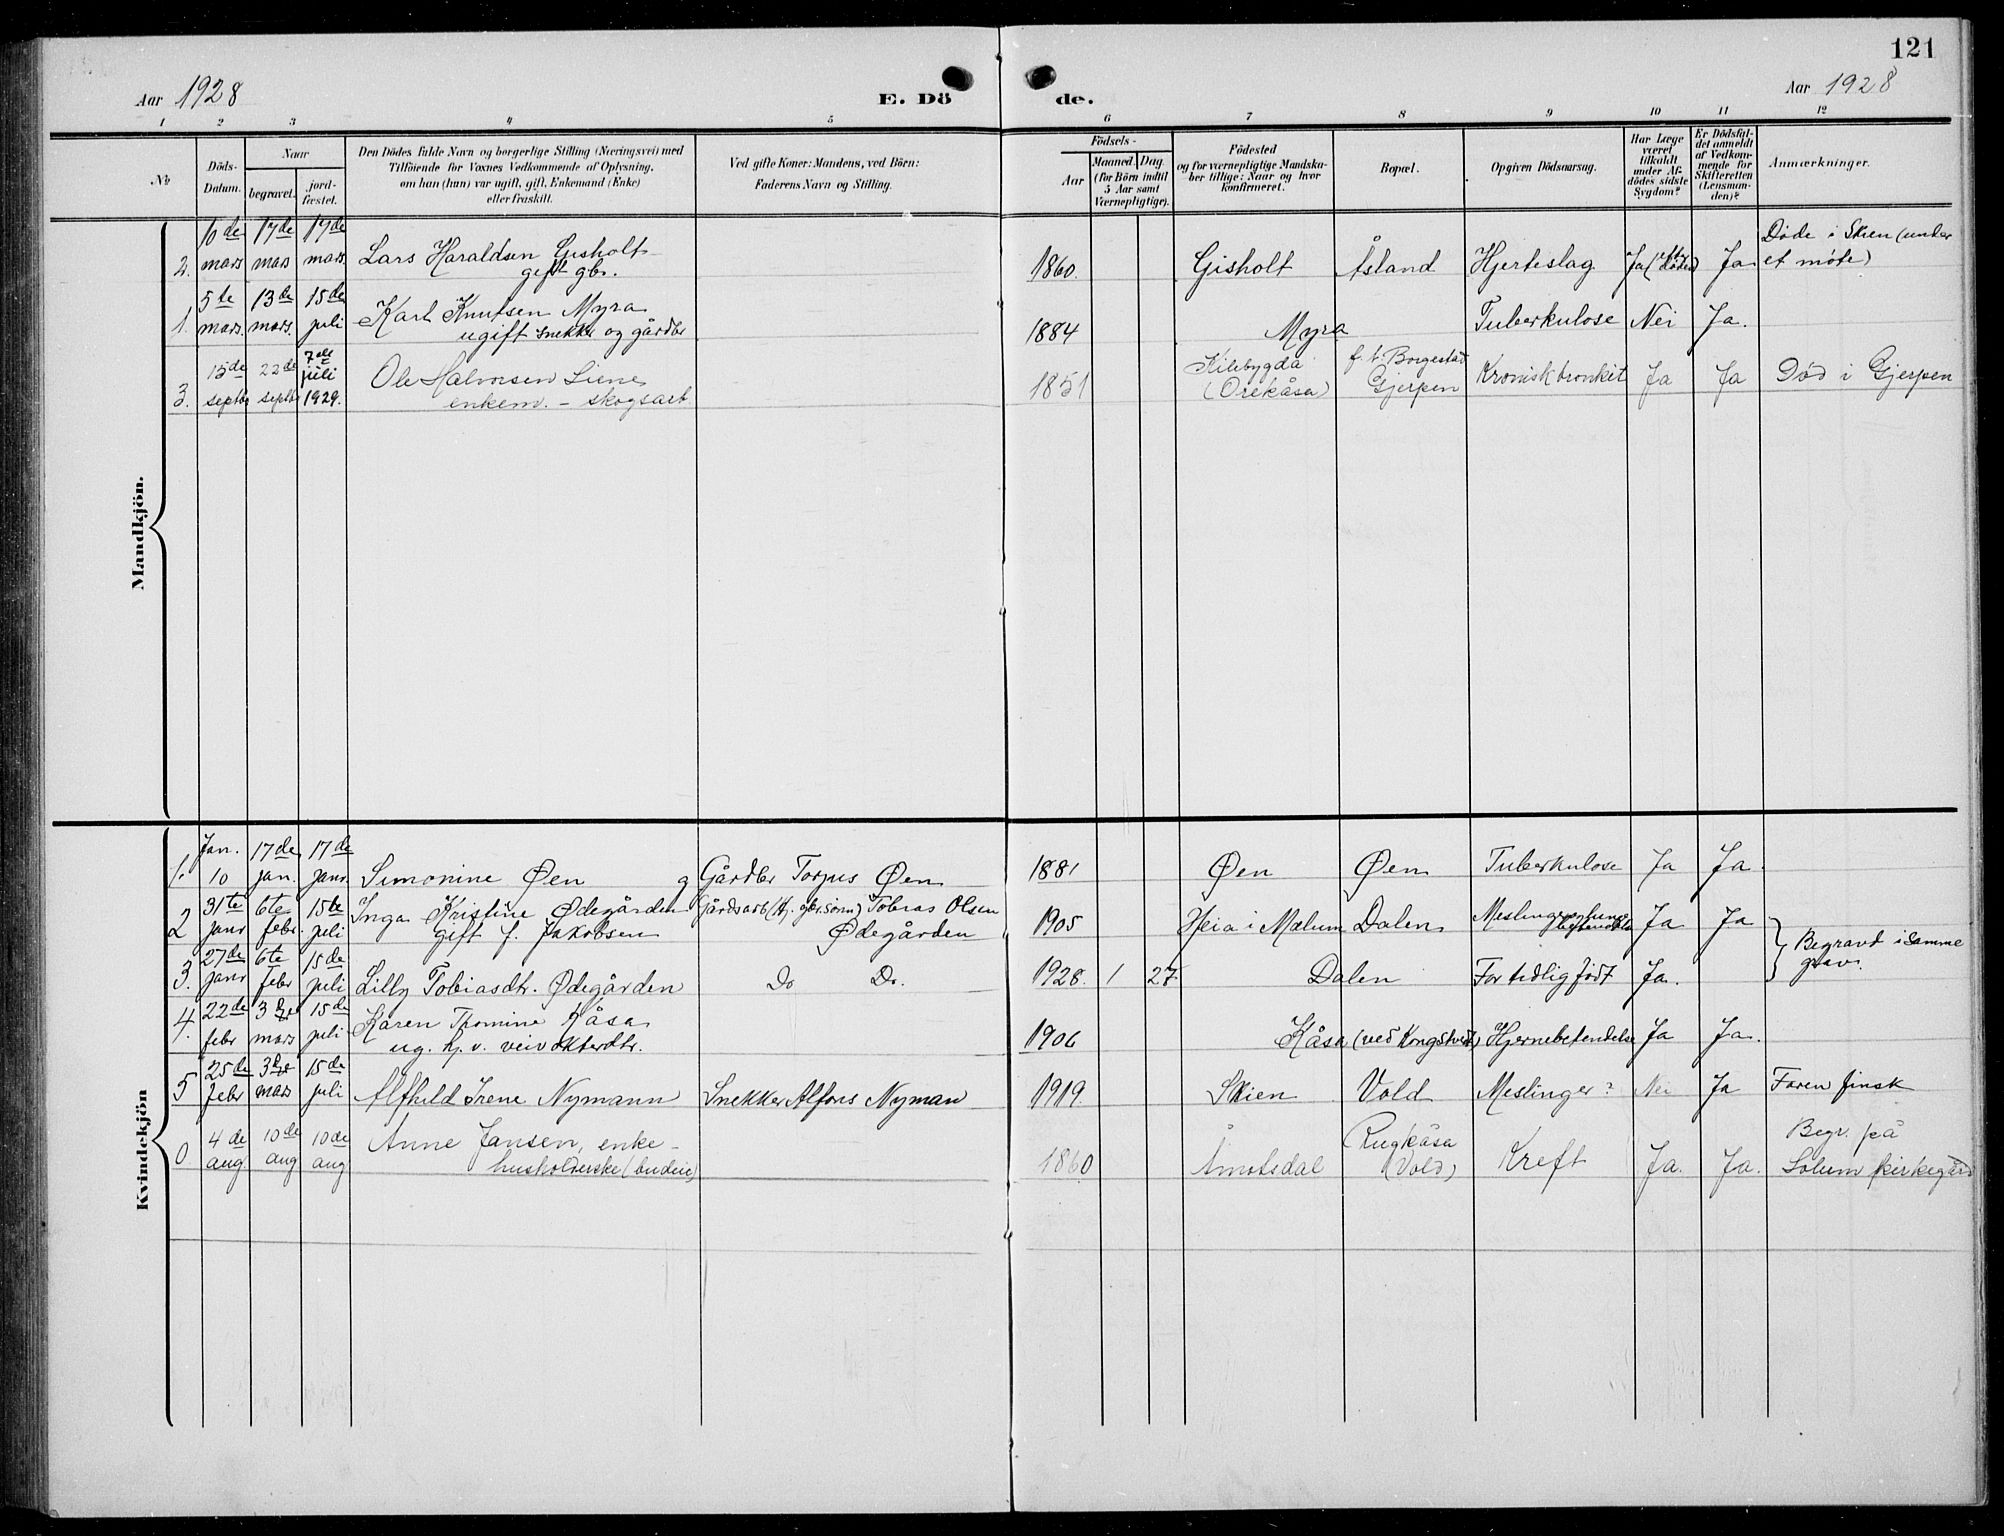 121
Aar 1928 E. Dö de. Aar 1928
1 2 3 4 5 6 7 8 9 10 11 12
No
Döds-Datum.
Naar
begravet.
jord-fæstet.
Den Dödes fulde Navn og borgerlige Stilling (Næringsvei) med
Tilföiende for Voxnes Vedkommende af Oplysning,
om han (hun) var ugift, gift, Enkemand (Enke)
eller fraskilt.
Ved gifte Koner: Mandens, ved Börn:
Faderens Navn og Stilling.
Födsels-
Aar
Maaned. Dag.
(for Börn indtil
5 Aar samt
Værnepligtige).
Födested
og for værnepligtige Mandska-
ber tillige: Naar og hvor
konfirmeret.
Bopæl.
Opgiven Dödsaarsag.
Har Læge
været
tilkaldt
under Af-
dödes sidste
Sygdom?
Er Dödsfal-
det anmeldt
af Vedkom-
mende for
Skifteretten
(Lensman-
den)?
Anmærkninger.
Mandkjön.
10de 17de 17de Døde i Skien (under
2. mars mars mars. Lars Haraldsen Gisholt 1860. Gisholt Åsland Hjerteslag Ja (efter døden) Ja et møte)
gift gbr.
5te 13de 15de Karl Knutsen Myra
1. mars. mars. juli ugift snekker og gårdbr 1884 Myra Tuberkulose Nei Ja.
15de 22de 7de juli Ole Halvorsen Liene Kilebygda f. t. Borgestad
3. septbr septbr 1929. enkem. - skogsarb 1851 (Orekåsa) Gjerpen Kronisk bronkit Ja Ja Død i Gjerpen
Kvindekjön
Jan. 17de 17de
1. 10 jan. janr. Simonine Øen g Gårdbr Torjus Øen 1881 Øen Øen Tuberkulose Ja Ja.
31te 6te 15de Inga Kristine Ødegården Gårdsarb (hj. gbr. sønn) Tobias Olsen
2 janr febr. juli gift f. Jakobsen Ødegården 1905 Heia i Mælum Dalen Meslinger Ja Ja
Begravd i samme
grav.
27de 6te 15de
3. janr febr juli Lilly Tobiasdtr. Ødegården Do Do. 1928. 1 27. Dalen For tidlig født Ja.
22de 3dje 15de Karen Thomine Kåsa
4. febr mars juli ug. hj. v. veivokterdtr. 1906 Kåsa (ved Kongstveit) Hjernebetendelse Ja Ja.
25de 3dje 15de
5 febr mars juli Alfhild Irene Nymann Snekker Alfons Nyman 1919. Skien Vold Meslinger? Nei Ja Faren finsk
4de 10de 10de Anne Jansen, enke - Rugkåsa Begr. på
0 aug. aug aug husholderske (budeie) 1860 Åmotsdal (Vold) Kreft Ja. Ja. Solum kirkegård